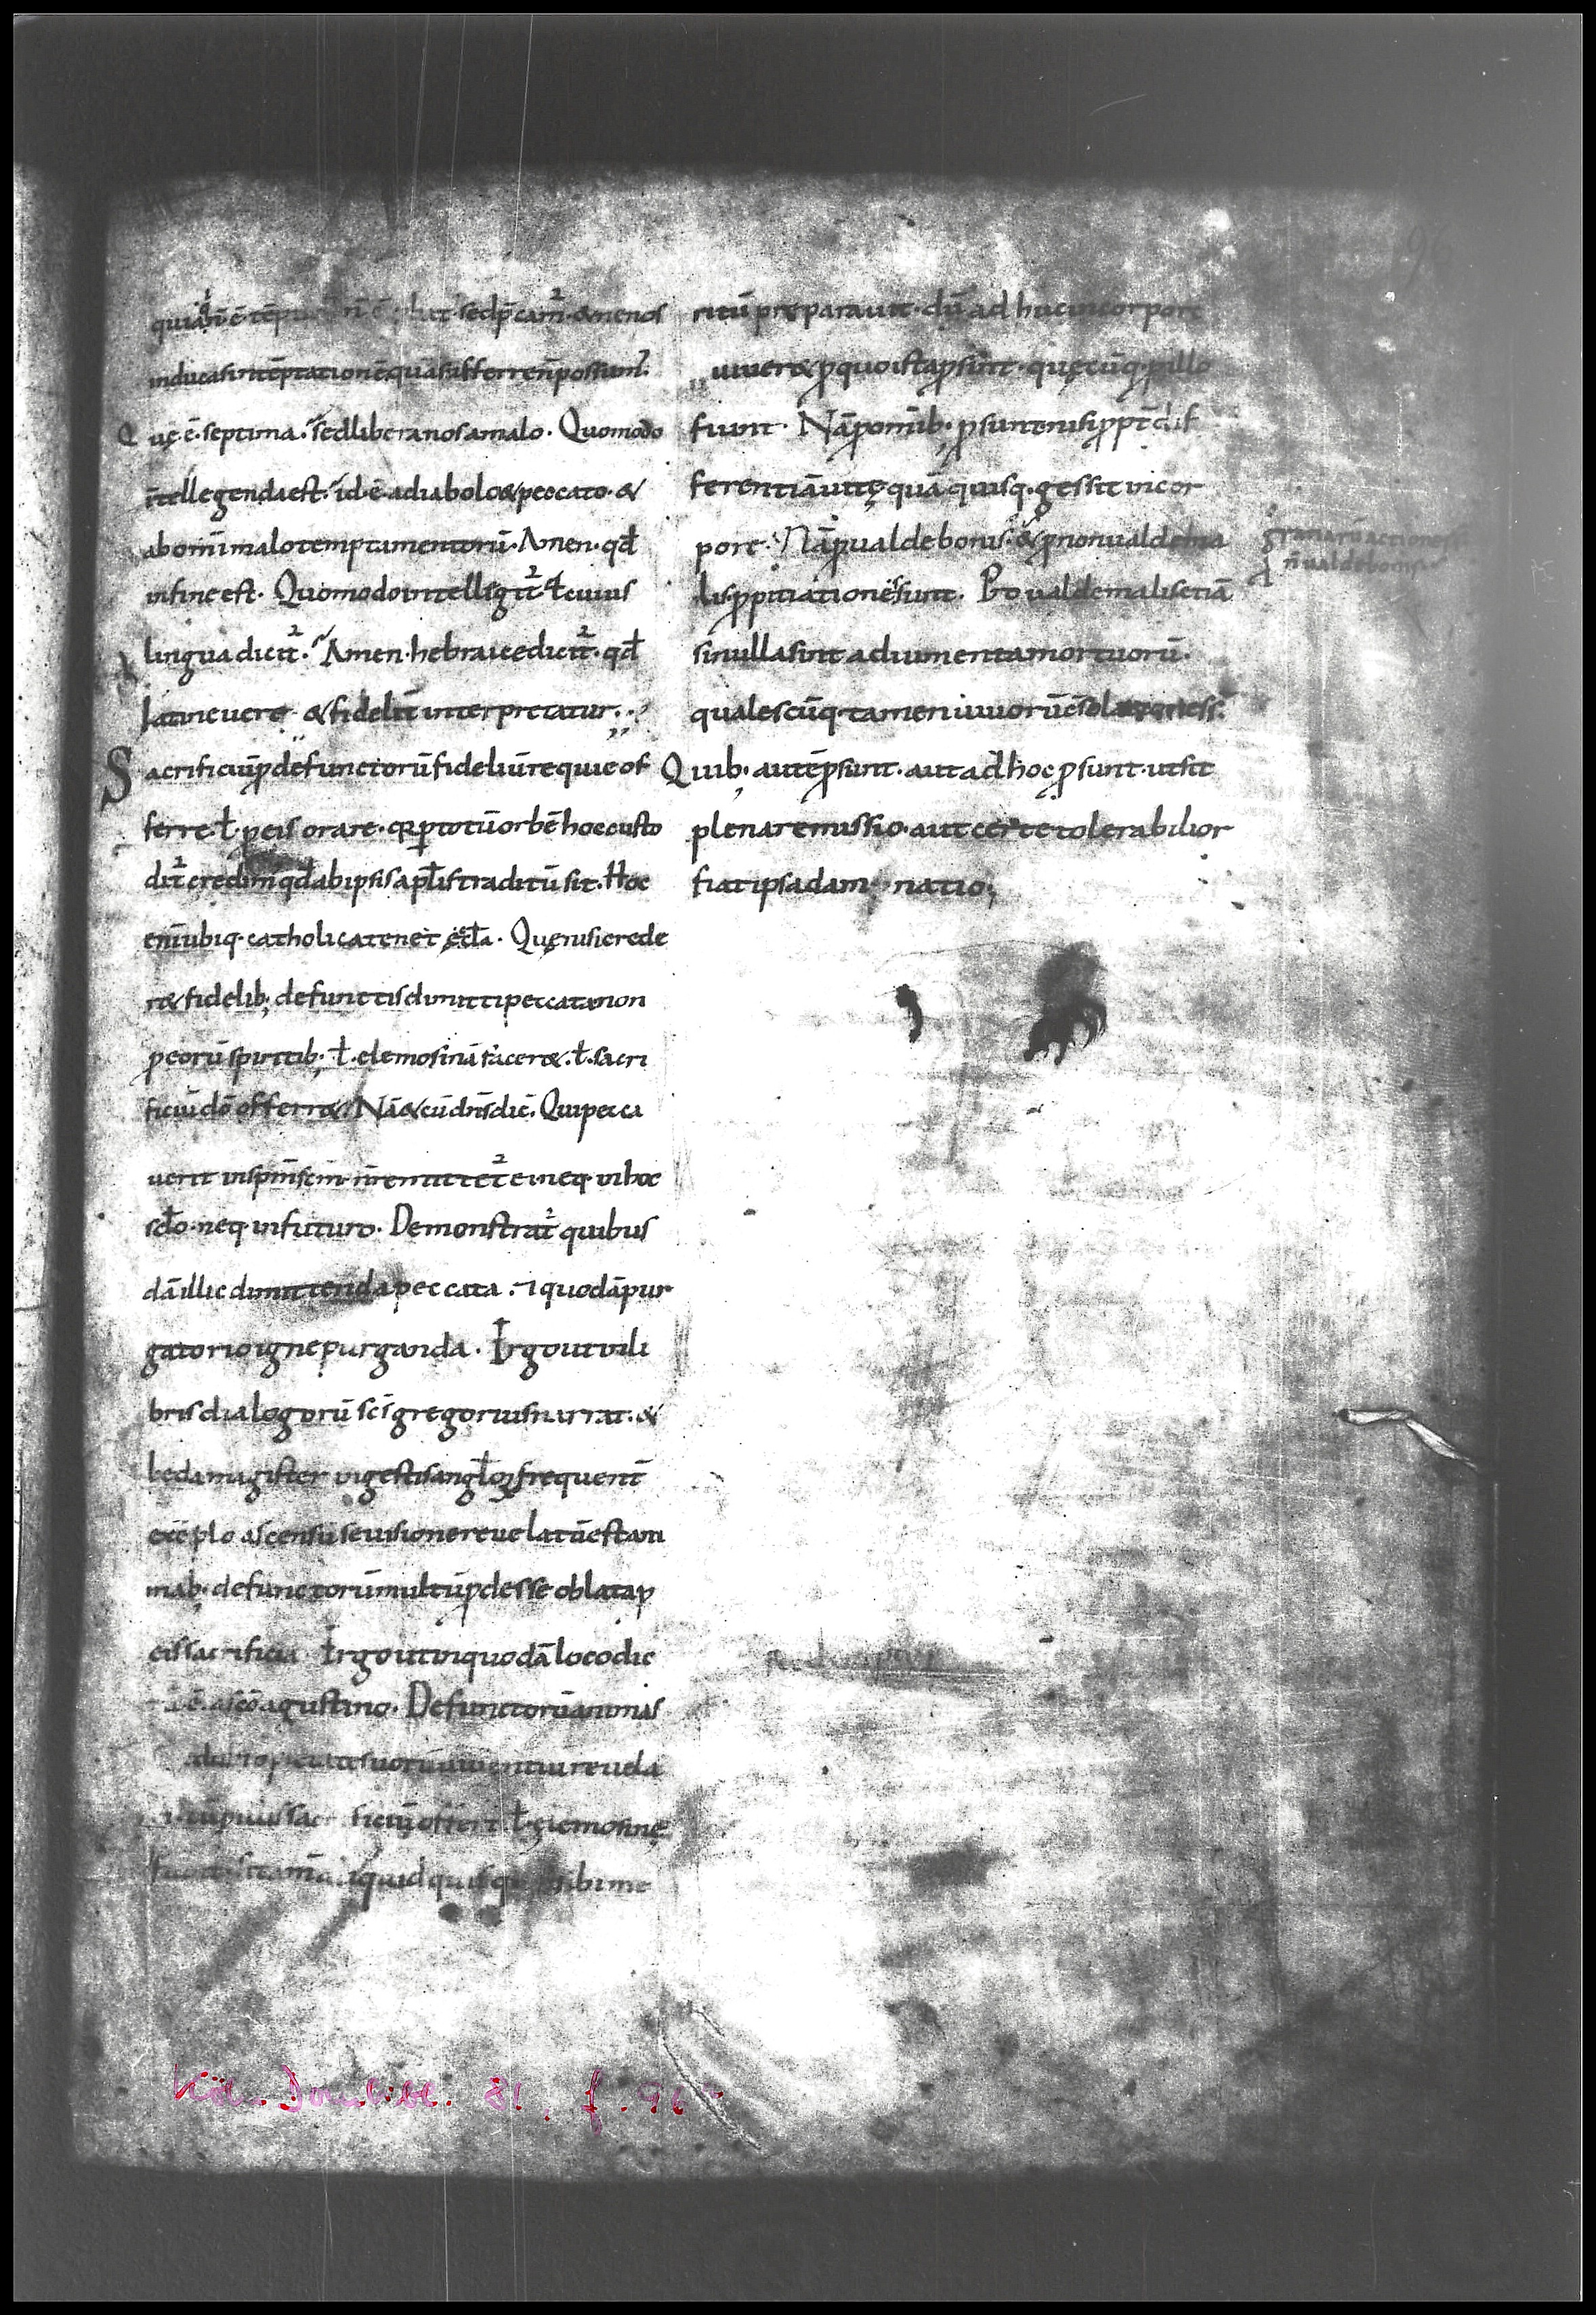 quia si ñ ē tēp ñ ē sed p̄cam̄². & ne nos
inducas in tēptationē quā sufferre ñ possum?
Quę ē septima. sed libera nos a malo. Quomodo
īntellegenda est. id ē a diabolo & peccato. &
ab om̄i malo temptamentorū. Amen. qđ
in fine est. Quomodo intelligit̄² ł cuius
lingua dicit̄². Amen. hebraice dicit̄². qđ
latine uere & fidelit̄ interpretatur.
Sacrificiū ꝓ defunctorū fideliū requie of
ferre ł ꝓ eis orare. qꝛ ꝑ totū orbē hoc custo
dit̄² credim̄ qđ ab ipsis apłis traditū sit. Hoc
enī ubiq· catholica tenet ęcła. Quę nisi crede
r& fidelib; defunctis dimitti peccata non
ꝓ eorū spiritib; ł elemosinā facer&. ł sacri
ficiū dō offerr&. Nā & cū dn̄s dic̄. Qui pecca
uerit in sp̄m sc̄m n̄ remittet̄² ei neq· in hoc
scło. neq· in futuro. Demonstrat̄² quibus
dā illic dimittenda peccata. ⁊ quodā pur
gatorio igne purganda. Ergo ut in li
bris dialogorū sc̄s gregorius narrat. &
beda magister in gestis angłoꝝ frequent̄
exēplo ascensu seu visione reuelatū est ani
mab; defunctorū multū ꝓdesse oblata ꝓ
eis sacrificia. Ergo ut in quodā loco dic
ē. a sc̄o agustino. Defunctorū animas
pietate suorū uiuentiū reuela
ficiū offert ł elemosine
aliquid quisq· sibi me
ritū preparauit. dū ad huc in corpore
uiuer& ꝑ quo ista ꝓsint. quęcūq· ꝓ illo
fiunt. Nā ꝓ om̄ib; ꝓsunt nisi ꝓpt̄ dif
ferentiā uitę quā quisq· gessit in cor
pore. Nā ꝓ ualde bonis. & ꝓ non ualde ma
lis ꝓpitiationēs sunt. Pro ualde malis etiā
gratiarū actiones s̄
ñ ualde bonis
si nulla sint adiumenta mortuorū.
qualescūq· tamen uiuorū c̄solationes s̄.
Quib; autē ꝓsunt. aut ad hoc ꝓsunt. ut sit
plena remissio. aut certe tolerabilior
fiat ipsa damnatio;
96
Köln Dombibl. 81, f. 96r